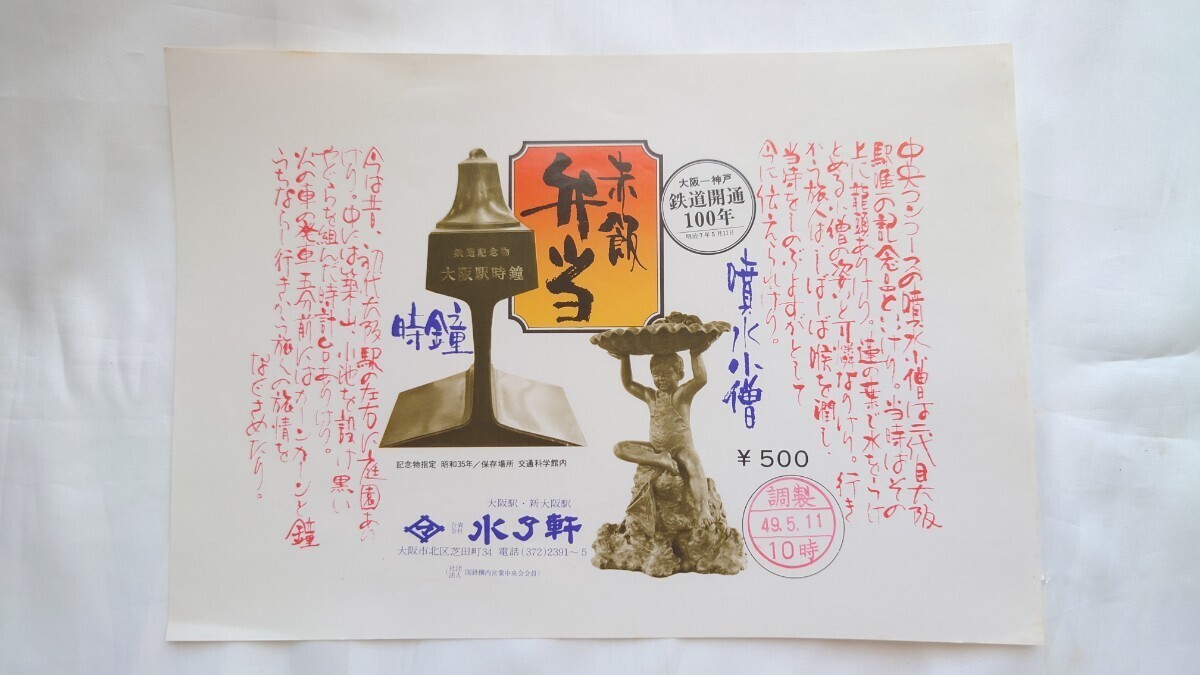 中央コンコースの噴水小僧は二代目大阪
駅准の記念品といひけり。当時はその
上に龍頭ありけり。蓮の葉で水をうけ
とめる小僧の姿いと可憐なりけり。行き
かう旅人はしばしば喉を潤し
当時をしのぶよすがとして
今に伝えられけり。
大阪ー神戸
鉄道開通
100年
明治7年5月11日
赤飯
弁当
噴水小僧
鉄道記念物
大阪駅時鐘
時鐘
今は昔、初代大阪駅の左右に庭園あり
けり。中には築山、小池を設け黒い
やぐらを組んだ時計台ありけり。
火の車の発車五分前にはカーンカーンと鐘
うちならし行きかう旅人の旅情を
なぐさめたり。
記念物指定 昭和35年/保存場所 交通科学館内
¥500
調製
49.5.11
10時
大阪駅・新大阪駅
合資会社 水了軒
大阪市北区芝田町34 電話(372)2391～5
(社団法人 国鉄構内営業中央会会員)